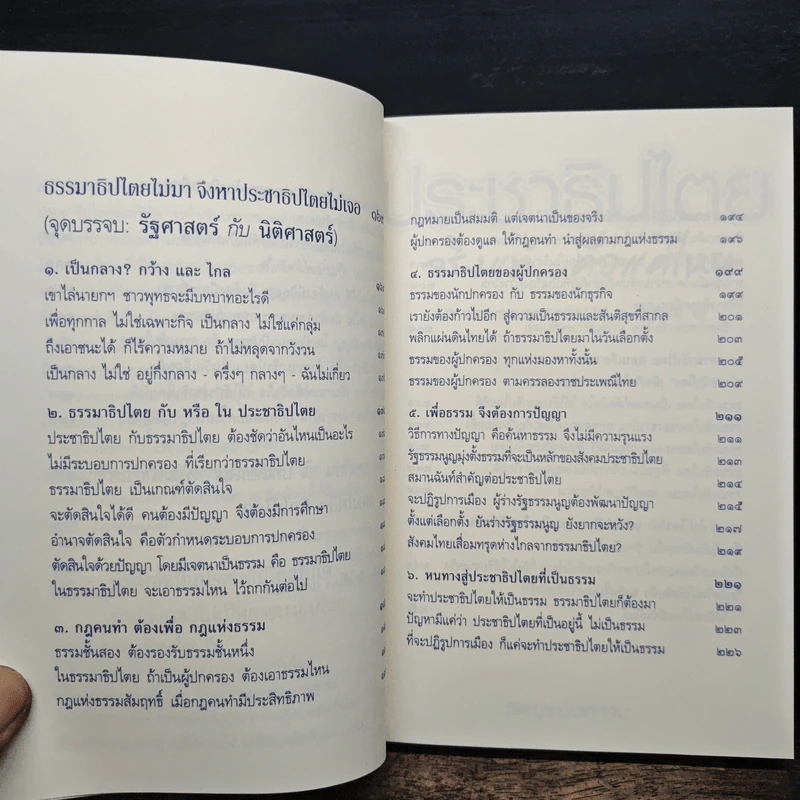 ธรรมาธิปไตยไม่มา จึงหาประชาธิปไตยไม่เจอ
(จุดบรรจบ: รัฐศาสตร์ กับ นิติศาสตร์)
๑. เป็นกลาง? กว้าง และ ไกล
เขาไล่นายกฯ ชาวพุทธจะมีบทบาทอะไรดี
เพื่อทุกกาล ไม่ใช่เฉพาะกิจ เป็นกลาง ไม่ใช่แค่กลุ่ม
ถึงเอาชนะได้ ก็ไร้ความหมาย ถ้าไม่หลุดจากวังวน
เป็นกลาง ไม่ใช่ อยู่กึ่งกลาง - ครึ่งๆ กลางๆ - ฉันไม่เกี่ยว
๒. ธรรมาธิปไตย กับ หรือ ใน ประชาธิปไตย
ประชาธิปไตย กับธรรมาธิปไตย ต้องชัดว่าอันไหนเป็นอะไร
ไม่มีระบอบการปกครอง ที่เรียกว่าธรรมาธิปไตย
ธรรมาธิปไตย เป็นเกณฑ์ตัดสินใจ
จะตัดสินใจได้ดี คนต้องมีปัญญา จึงต้องมีการศึกษา
อำนาจตัดสินใจ คือตัวกำหนดระบอบการปกครอง
ตัดสินใจด้วยปัญญา โดยมีเจตนาเป็นธรรม คือ ธรรมาธิปไตย
ในธรรมาธิปไตย จะเอาธรรมไหน ไว้ถกกันต่อไป
๓. กฎคนทำ ต้องเพื่อ กฎแห่งธรรม
ธรรมชั้นสอง ต้องรองรับธรรมชั้นหนึ่ง
ในธรรมาธิปไตย ถ้าเป็นผู้ปกครอง ต้องเอาธรรมไหน
กฎแห่งธรรมสัมฤทธิ์ เมื่อกฎคนทำมีประสิทธิภาพ
กฎหมายเป็นสมมติ แต่เจตนาเป็นของจริง ๑๙๔
ผู้ปกครองต้องดูแล ให้กฎคนทำ นำสู่ผลตามกฎแห่งธรรม ๑๙๖
๔. ธรรมาธิปไตยของผู้ปกครอง ๑๙๙
ธรรมของนักปกครอง กับ ธรรมของนักธุรกิจ ๑๙๙
เรายังต้องก้าวไปอีก สู่ความเป็นธรรมและสันติสุขที่สากล ๒๐๑
พลิกแผ่นดินไทยได้ ถ้าธรรมาธิปไตยมาในวันเลือกตั้ง ๒๐๓
ธรรมของผู้ปกครอง ทุกแห่งมองหาทั้งนั้น ๒๐๕
ธรรมของผู้ปกครอง ตามครรลองราชประเพณีไทย ๒๐๙
๕. เพื่อธรรม จึงต้องการปัญญา ๒๑๑
วิธีการทางปัญญา คือค้นหาธรรม จึงไม่มีความรุนแรง ๒๑๑
รัฐธรรมนูญมุ่งตั้งธรรมที่จะเป็นหลักของสังคมประชาธิปไตย ๒๑๓
สมานฉันท์สำคัญต่อประชาธิปไตย ๒๑๔
จะปฏิรูปการเมือง ผู้ร่างรัฐธรรมนูญต้องพัฒนาปัญญา ๒๑๕
ตั้งแต่เลือกตั้ง ยันร่างรัฐธรรมนูญ ยังยากจะหวัง? ๒๑๗
สังคมไทยเสื่อมทรุดห่างไกลจากธรรมาธิปไตย? ๒๑๙
๖. หนทางสู่ประชาธิปไตยที่เป็นธรรม ๒๒๑
จะทำประชาธิปไตยให้เป็นธรรม ธรรมาธิปไตยก็ต้องมา ๒๒๑
ปัญหามีแค่ว่า ประชาธิปไตยที่เป็นอยู่นี้ ไม่เป็นธรรม ๒๒๓
ที่จะปฏิรูปการเมือง ก็แค่จะทำประชาธิปไตยให้เป็นธรรม ๒๒๖